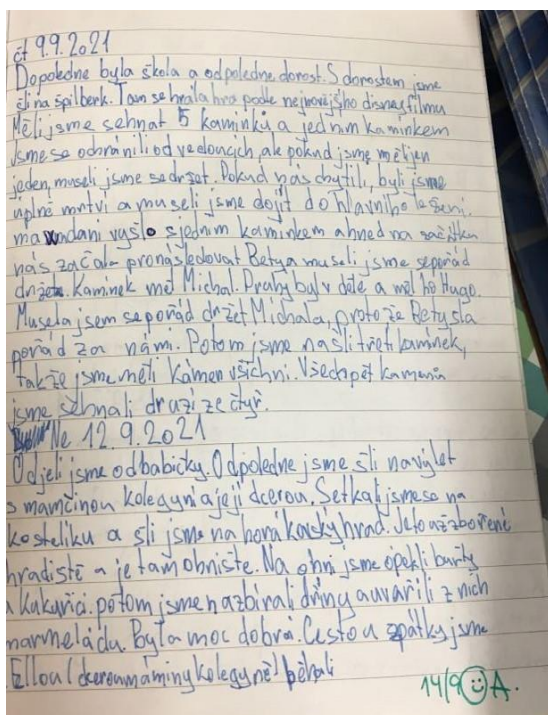 čt 9.9.2021
Dopoledne byla škola a odpoledne dorost. S dorostem jsme
šli na špilberk. Tam se hrála hra podle nejnovějšho disney filmu
Měli jsme sehnat 5 kaminků a jednim kaminkem
jsme se ochránili od vedoucich, ale pokud jsme měli jen
jeden, museli jsme se držet. Pokud nás chytili, byli jsme
úplně mrtvi a museli jsme dojit do hlavniho
vyšlo s jednim kaminkem a hned na začátku
nás začala pronásledovat Bety a museli jsme se pořád
držet. Kaminek měl Michal. Pravý byl v dělě a měl ho Hugo.
Musela jsem se pořád držet Michala, protože Bety šla
pořád za námi. Potom jsme našli třeti kaminek,
takže jsme měli kámen všichni. Všech pět kamenů
jsme sehnali druzí ze čtyř.
Ne 12.9.2021
Odjeli jsme od babičky. Odpoledne jsme šli na výlet
s mamčinou kolegyni a jeji dcerou. Setkali jsme se na
kosteliku a šli jsme na hrad. Je to už zbořené
hradiště a je tam ohniště. Na ohni jsme opekli buřty
a kukuřici. potom jsme nazbirali dřiny a uvařili z nich
marmeládu. Byla moc dobrá. Cestou zpátky jsme
Ellou (dcerou maminy kolegyně) běhali
14/9 A.